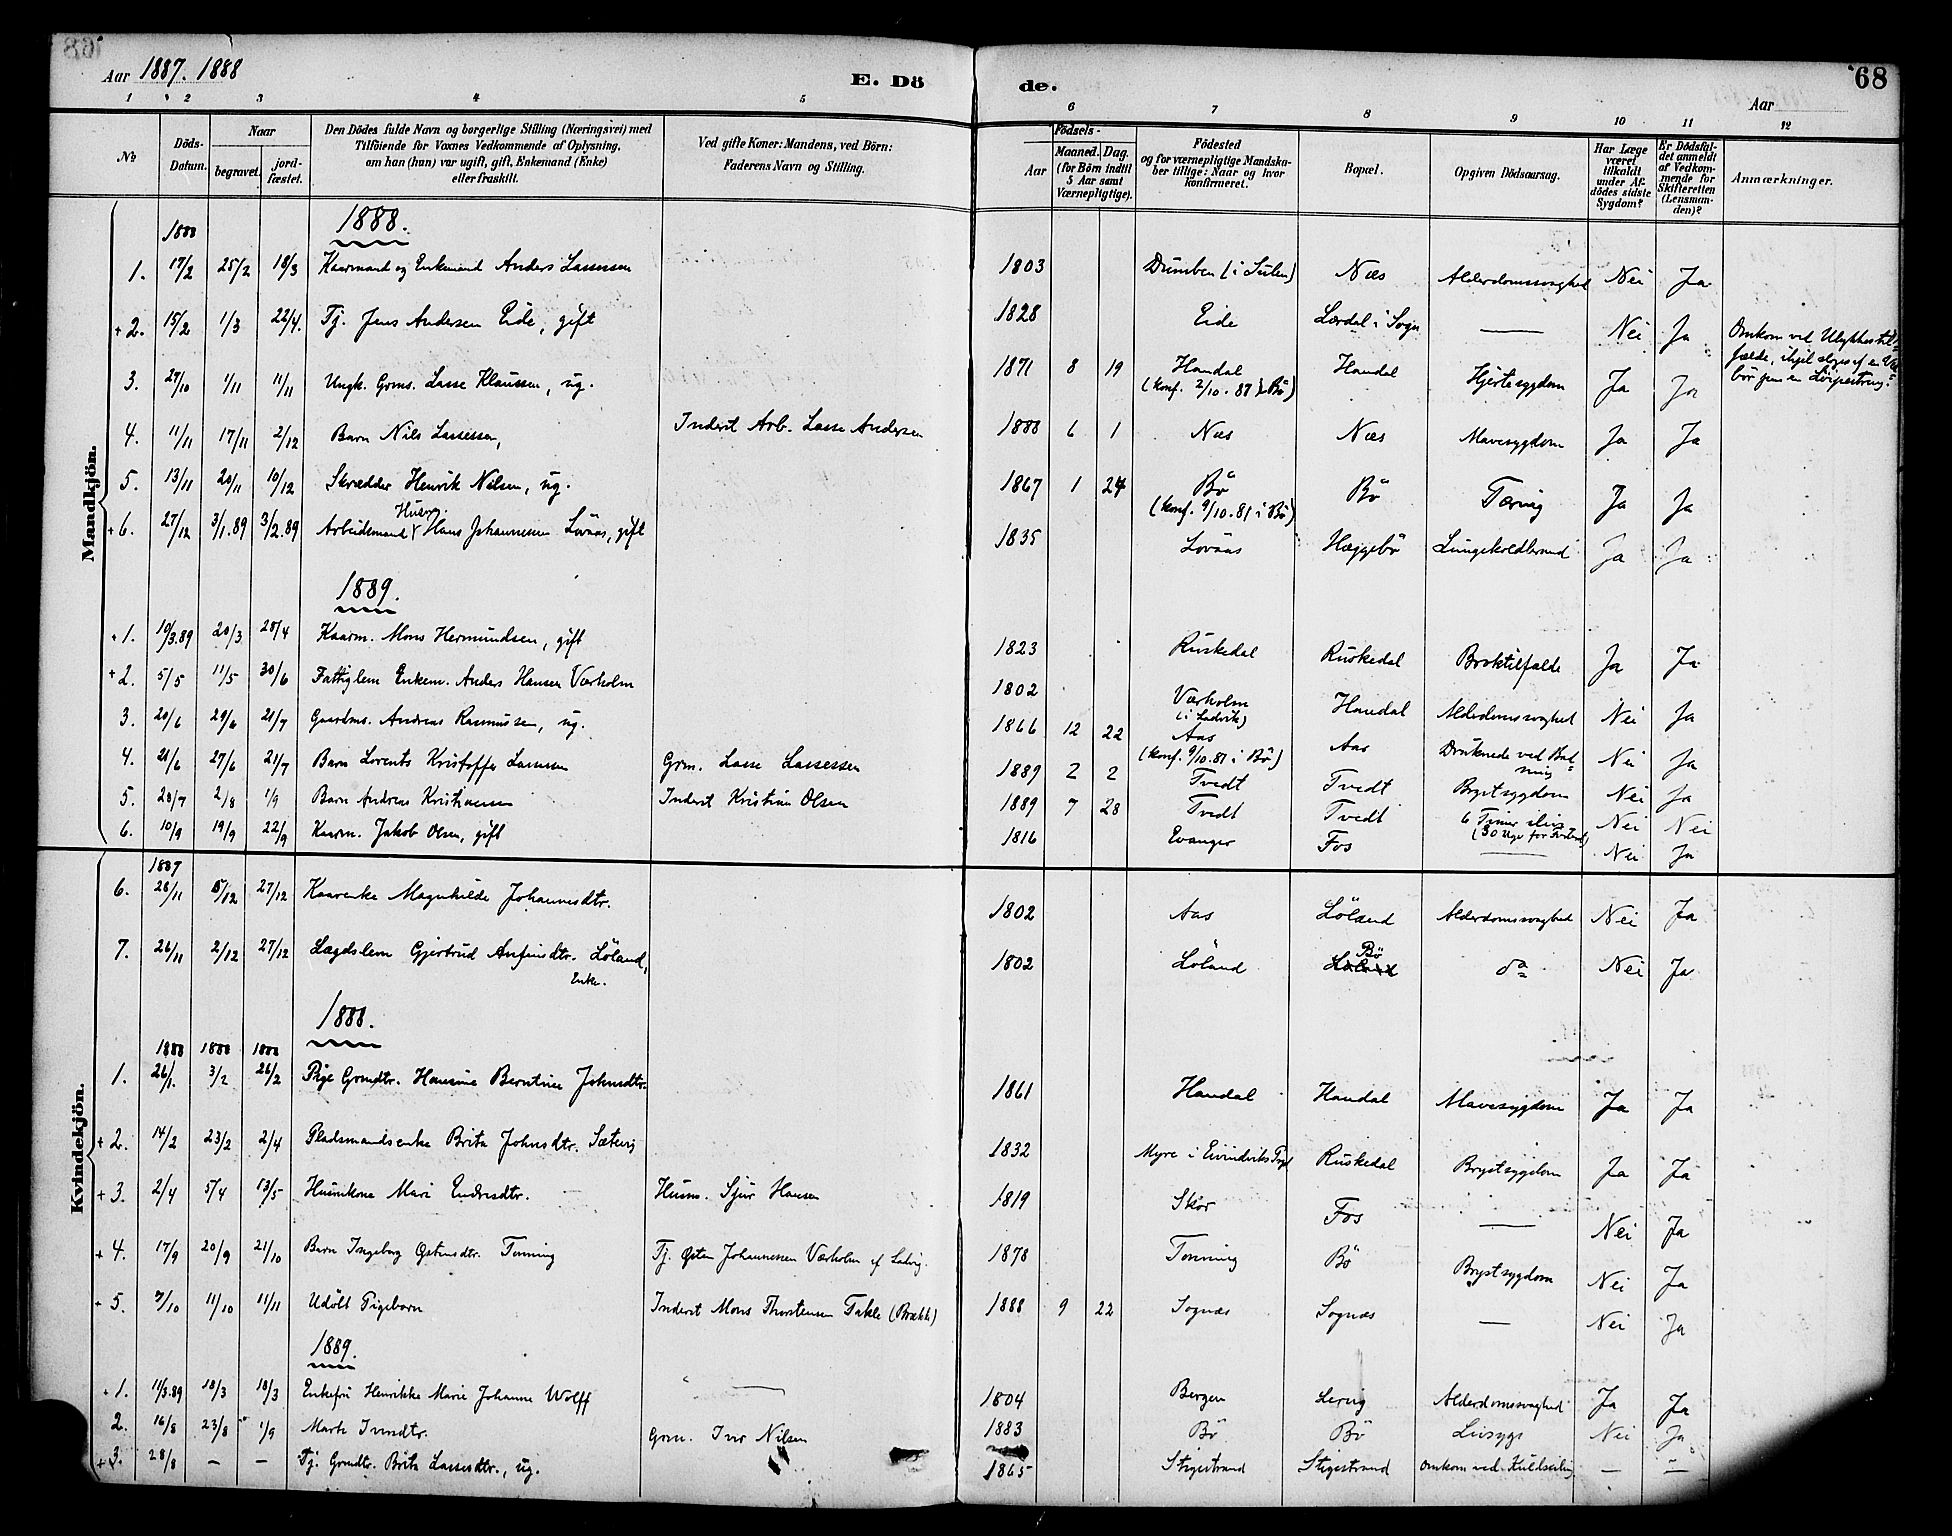 Aar 1887. 1888
E. Dö
de.
68
Aar
1 2 3 4 5 6 7 8 9 10 11 12
No
Döds-
Datum.
Naar
begravet.
jord-
fæstet.
Den Dödes fulde Navn og borgerlige Stilling (Næringsvei) med
Tilföiende for Voxnes Vedkommende af Oplysning,
om han (hun) var ugift, gift, Enkemand (Enke)
eller fraskilt.
Ved gifte Koner: Mandens, ved Börn:
Faderens Navn og Stilling.
Födsels-
Aar
Maaned. Dag.
(for Börn indtil
5 Aar samt
Værnepligtige).
Födested
og for værnepligtige Mandska-
ber tillige: Naar og hvor
konfirmeret.
Bopæl.
Opgiven Dödsaarsag.
Har Læge
været
tilkaldt
under Af-
dödes sidste
Sygdom?
Er Dödsfal-
det anmeldt
af Vedkom-
mende for
Skifteretten
(Lensman-
den)?
Anmærkninger.
Mandkjön.
1888 1888.
1. 17/2 25/2 18/3 Kaarmand og Enkemand Anders Lassesen 1803 Dumben (i Sulen) Næs Alderdomssvaghed Nei Ja
+2. 15/2 1/3 22/4. Tj. Jens Andersen Eide, gift 1828 Eide Lærdal i Sogn — Nei Ja Omkom ved Ulykkestil-
fælde, ihjel af en
3. 27/10 1/11 11/11 Ungk. Grms. Lasse Klaussen, ug. 1871 8 19 Handal Handal Hjertesygdom Ja Ja
(konf. 2/10. 87 i Bö)
4. 11/11 17/11 2/12 Barn Nils Lassesen, Inderst Arb. Lasse Andersen 1888 6 1 Næs Næs Mavesygdom Ja Ja
5. 13/11 20/11 10/12 Skrædder Henrik Nilsen, ug. 1867 1 24 Bö Bö Tæring Ja Ja
(konf. 9/10. 81 i Bö)
Husm.
+6. 27/12 3/1.89 3/2.89 Arbeidsmand Hans Johannesen Lovaas, gift 1835 Lovaas Hæggebö Lungekoldbrand Ja Ja
1889.
+1. 10/3.89 20/3 28/4 Kaarm. Mons Hermundsen, gift 1823 Ruskedal Ruskedal Broktilfælde Ja Ja
+2. 5/5 11/5 30/6 Fattiglem Enkem. Anders Hansen Værholm 1802 Værholm Handal Alderdomssvaghed Nei Ja
(i Ladvik)
3. 20/6 29/6 21/7 Gaardms. Andreas Rasmussen, ug. 1866 12 22 Aas Aas Druknede ved Bad-
ning Nei Ja
(konf. 9/10.81 i Bö)
4. 21/6 27/6 21/7 Barn Lorents Kristoffer Lassesen Grm. Lasse Lassesen 1889 2 2 Tvedt Tvedt Brystsygdom Nei Ja
5. 28/7 2/8 1/9 Barn Andreas Kristiansen Inderst Kristian Olsen 1889 7 28 Tvedt Tvedt 6 Timer Nei Nei
6. 10/9 19/9 22/9 Kaarm. Jakob Olsen, gift 1816 Evanger Fos — Nei Ja
Kvindekjön.
1887
6. 26/11 5/12 27/12 Kaarenke Magnhilde Johannesdtr. 1802 Aas Löland Alderdomssvaghed Nei Ja
7. 26/11 2/12 27/12 Lægdslem Gjertrud Anfinsdtr. Löland, 1802 Löland Bö do Nei Ja
Enke.
1888.
1888 1888 1888
1. 26/1. 3/2 26/2 Pige Grmdtr. Hansine Berntine Johnsdtr. 1861 Handal Handal Mavesygdom Ja Ja
+2. 14/2 23/2 2/4 Pladsmandsenke Brita Johnsdtr. Sætevig 1832 Myre i Eivindviks Prgl Ruskedal Brystsygdom Ja Ja
+3. 2/4 5/4 13/5 Huuskone Mari Endresdtr. Husm. Sjur Hansen 1819 Skor Fos — Nei Ja
+4. 17/9 20/9 21/10 Barn Ingeborg Østensdtr. Tonning Tj. Østen Johannessen Værholm af Ladvig. 1878 Tonning Bö Brystsygdom Nei Ja
+5. 7/10 11/10 11/11 Udöbt Pigebarn Inderst Mons Thorstensen Takle (Brække) 1888 9 22 Sognæs Sognæs — Nei Ja
1889.
+1. 11/3.89 18/3 18/3 Enkefru Henrikke Marie Johanne Wolff — 1804 Bergen Lervig Alderdomssvaghed Ja Ja
2. 16/8 23/8 1/9 Marte Iversdtr. Grm. Iver Nilsen 1883 Bö Bö Livsyge Nei Ja
+3. 28/8 — — Tj. Grmdtr. Brita Lassesdtr., ug. 1865 Stigestrand Stigestrand Omkom ved Kuldseiling — —